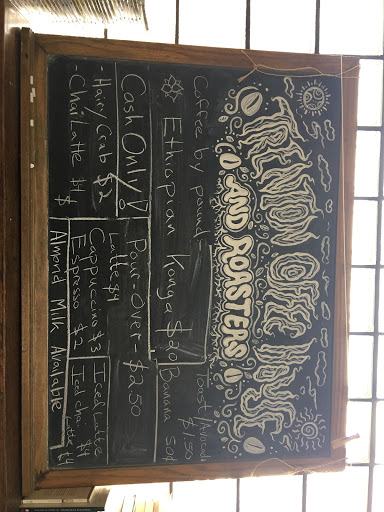 TRENTON COFFEE HOUSE
AND ROASTERS
Coffee by pound
Ethiopian Konga $20
Toast/Avocado
$1.50
Banana 50¢
Cash Only!
Pour-Over- $2.50
- Hairy Crab $2
- Chai Latte $4
Latte $4
Cappuccino $3
Espresso $2
Iced Latte
$4
Iced chai
Latte $4
Almond Milk Available